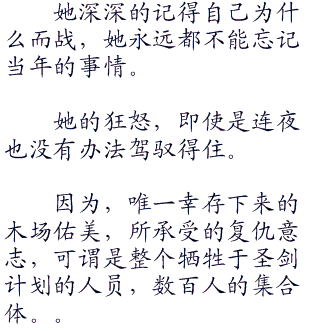 她深深的记得自己为什
么而战，她永远都不能忘记
当年的事情。
她的狂怒，即使是连夜
也没有办法驾驭得住。
因为，唯一幸存下来的
木场佑美，所承受的复仇意
志，可谓是整个牺牲于圣剑
计划的人员，数百人的集合
体。。